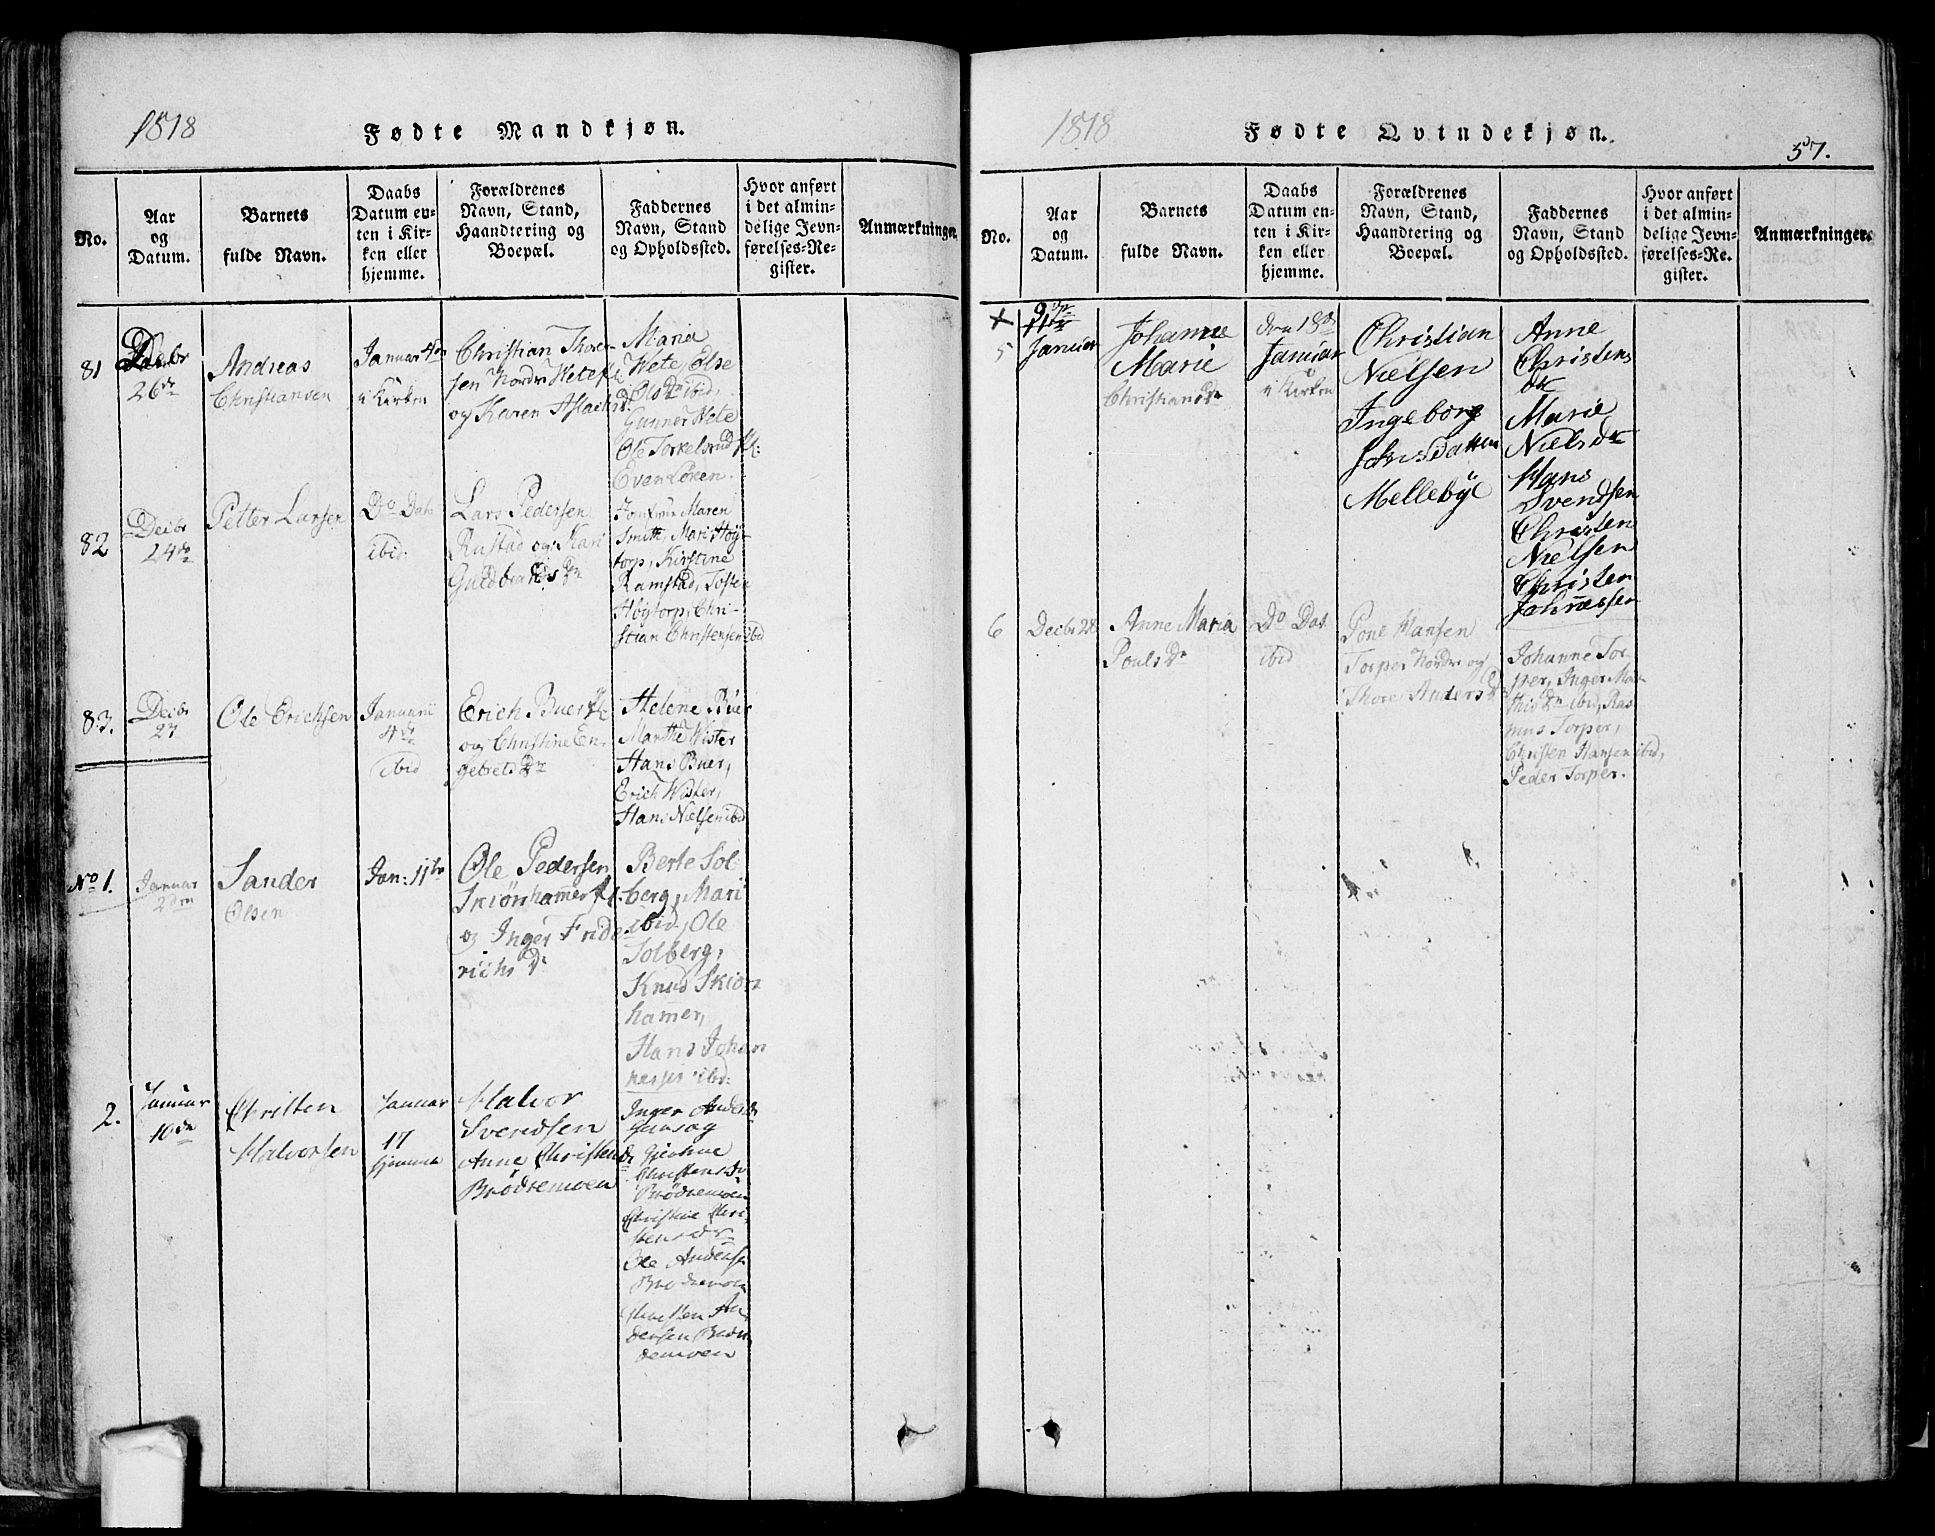 1818
Fødte Mandkjøn.
No.
Aar
og
Datum.
Barnets
fulde Navn.
Daabs
Datum en-
ten i Kir-
ken eller
hjemme.
Forældrenes
Navn, Stand,
Haandtering og
Boepæl.
Faddernes
Navn, Stand
og Opholdssted.
Hvor anført
i det almin-
delige Jevn-
førelses-Re-
gister.
Anmærkninger.
81
Decbr
26de
Andreas
Christiansen
Januar 4de
i Kirken
Christian Thore-
sen Nordre Wete
og Karen Aslachsdr
Maria
Wete, Olse
Ols Dr ibid,
Gunner Wete
Ole Torkelsrud
Even Løken.
82
Decbr
24de
Petter Larsen
Do Dato
ibid.
Lars Pedersen
Rustad og Kari
Guldbrands Dr
Jomfrue Maren
Smith, Mari Høy-
torp, Kirstine
Ramstad, Tosten
Høytorp, Chri-
stian Christensen ibid
83.
Decbr
27
Ole Erichsen
Januarii
4de
ibid
Erich Buer
og Christine En-
gebrets Dr
Helene Buer
Marthe Wister
Hans Buer,
Erich Wister,
Hans Nielsen ibid
No 1.
Januar
2den
Sander
Olsen
Jan: 11te
Ole Pedersen
Skiønhamer
og Inger Fride-
richs Dr
Berte Sol-
berg, Mari
ibid, Ole
Solberg,
Knud Skiøn-
hamer,
Hans Johan-
nesen ibid.
2.
Januar
10de
Christen
Halvorsen
Januar
17
hjemme
Halvor
Svendsen
Anne Christensdr
Brødremoen
Inger Andersdr
Christensdr
Brødremoen
Christine Chri-
stensdr
Ole Andersen
Brødremoen
Christen An-
dersen Brø-
demoen
1818
Fødte Qvindekjøn.
57.
No.
Aar
og
Datum.
Barnets
fulde Navn.
Daabs
Datum en-
ten i Kir-
ken eller
hjemme.
Forældrenes
Navn, Stand,
Haandtering og
Boepæl.
Faddernes
Navn, Stand
og Opholdssted.
Hvor anført
i det almin-
delige Jevn-
førelses-Re-
gister.
Anmærkninger.
5
Januar
Johanne
Marie
Christiansdr
den 18de
Januar
i Kirken
Christian
Nielsen
Ingeborg
Johnsdatter
Mellebye
Anne
Christens
dtr
Marie
Nielsdtr
Hans
Svendsen
Christen
Nielsen
Christen
Johnessen
6
Decbr 28
Anne Maria
Pouls Dr
Do Dat
ibid
Hansen
Torper Nordre og
Thore Anders Dr
Johanne Tor-
per, Inger Ma-
this Dr ibid, Ras-
mus Torper,
Christen Hansen ibid,
Peder Torper.